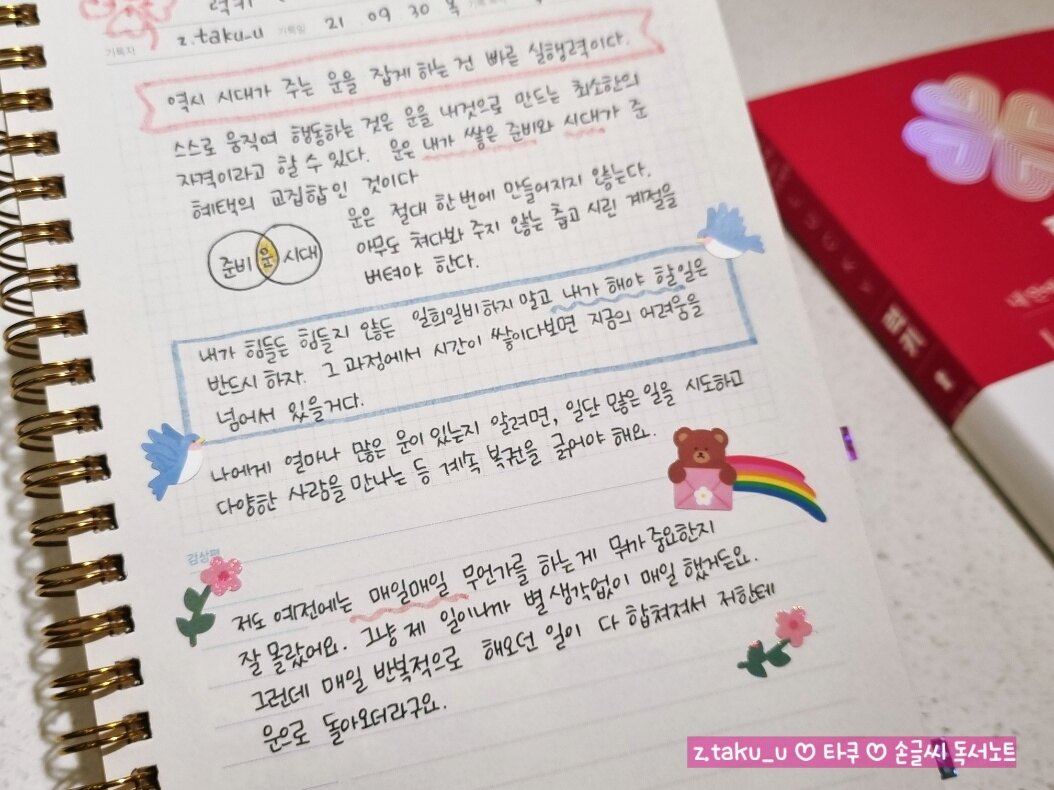 기록자 z.taku_u 기록일 21 09 30 목
역시 시대가 주는 운을 잡게 하는 건 빠른 실행력이다.
스스로 움직여 행동하는 것은 운을 내것으로 만드는 최소한의
자격이라고 할 수 있다. 운은 내가 쌓은 준비와 시대가 준
혜택의 교집합인 것이다
준비 운 시대
운은 절대 한번에 만들어지지 않는다.
아무도 쳐다봐 주지 않는 춥고 시린 계절을
버텨야 한다.
내가 힘들든 힘들지 않든 일희일비하지 말고 내가 해야 할일은
반드시 하자. 그 과정에서 시간이 쌓이다보면 지금의 어려움을
넘어서 있을거다.
나에게 얼마나 많은 운이 있는지 알려면, 일단 많은 일을 시도하고
다양한 사람을 만나는 등 계속 복권을 긁어야 해요.
감상평
저도 예전에는 매일매일 무언가를 하는게 뭐가 중요한지
잘 몰랐어요. 그냥 제 일이니까 별 생각없이 매일 했거든요.
그런데 매일 반복적으로 해오던 일이 다 합쳐져서 저한테
운으로 돌아오더라구요.
z.taku_u ♡ 타쿠 ♡ 손글씨 독서노트